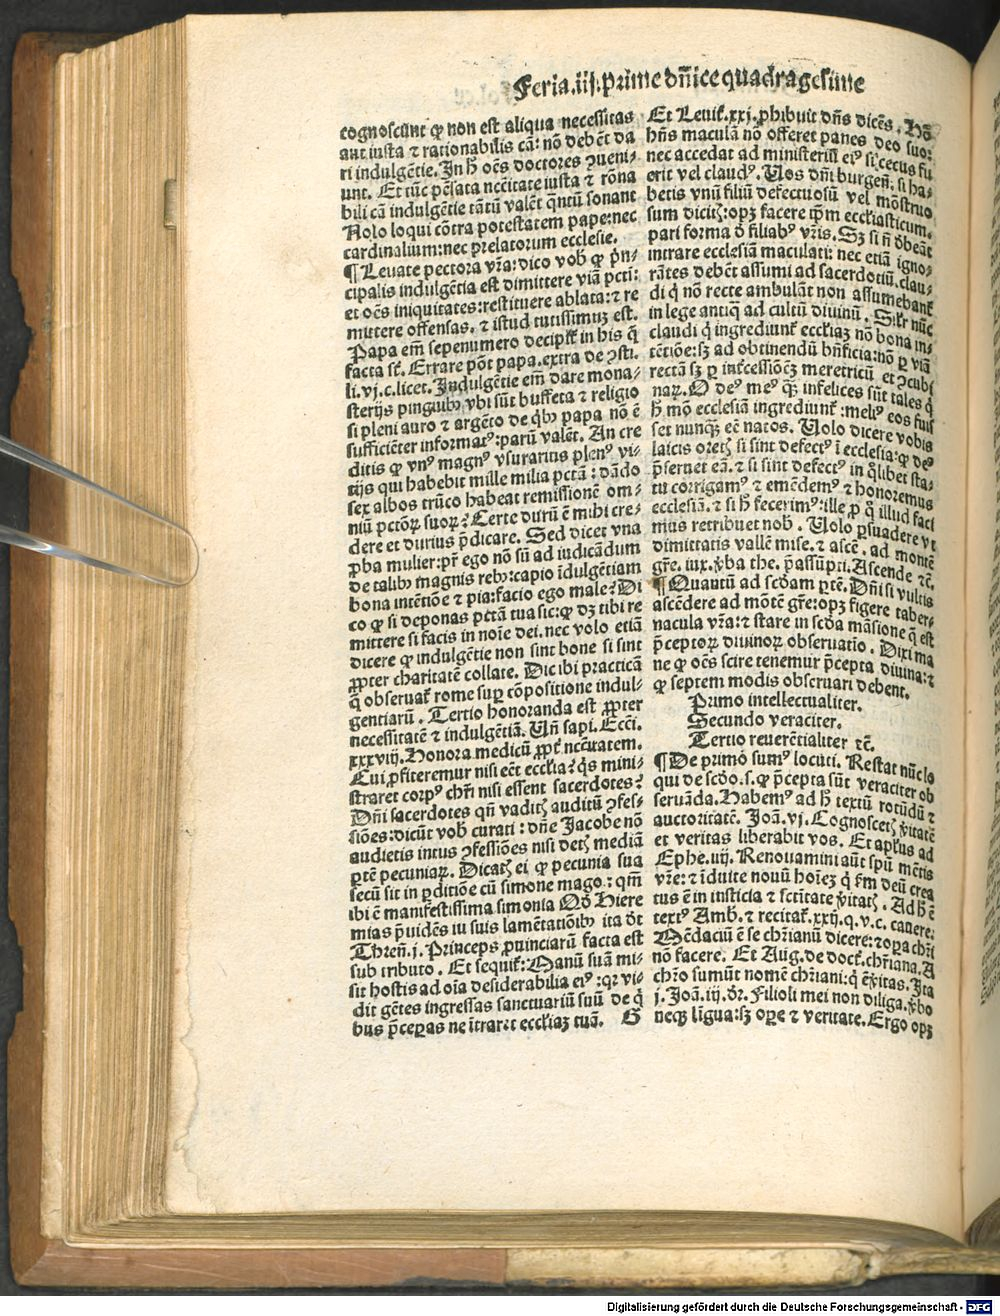 Feria.iij.prime dñice quadragesime
cognoscunt ꝙ non est aliqua necessitas
aut iusta ⁊ rationabilis cã: nõ debẽt da
ri indulgẽtie. In h̃ oẽs doctores ꝯueni⸗
unt. Et tũc pẽsata nccitate iusta ⁊ rõna
bili cã indulgẽtie tãtũ valẽt q̃ntũ sonant
Nolo loqui cõtra potestatem pape:nec
cardinalium:nec prelatorum ecclesie.
¶ Leuate pectora vr̃a: dico vob̃ ꝙ p̃n⸗
cipalis indulgẽtia est dimittere viã pctĩ:
et oẽs iniquitates:restituere ablata:⁊ re
mittere offensas. ⁊ istud tutissimuꝫ est.
Papa em̃ sepenumero decipit̃ in his q̃
facta sũt. Errare põt papa.extra de ꝯsti.
li.vj.c.licet. Indulgẽtie em̃ dare mona⸗
sterijs pinguibꝫ vbi sũt buffeta ⁊ religio
si pleni auro ⁊ argẽto de qb̃ꝫ papa nõ ẽ
sufficiẽter informatꝰ:parũ valẽt. An cre
ditis ꝙ vnꝰ magnꝰ vsurarius plenꝰ vi⸗
tijs qui habebit mille milia pctã : dãdo
sex albos trũco habeat remissionẽ om⸗
niũ pctõꝝ suoꝝ? Certe durũ ẽ mihi cre⸗
dere et durius p̃dicare. Sed dicet vna
ꝓba mulier:pr̃ ego nõ sũ ad iudicãdum
de talibꝫ magnis rebꝫ:capio ĩdulgẽtiam
bona intẽtiõe ⁊ pia:facio ego male? Di
co ꝙ si deponas pctã tua sic:ꝙ dꝫ tibi re
mittere si facis in noĩe dei. nec volo etiã
dicere ꝙ indulgẽtie non sint bone si sint
ꝓpter charitatẽ collate. Dic ibi practicã
q̃ obseruat̃ rome suꝑ cõpositione indul⸗
gentiarũ . Tertio honoranda est ꝓpter
necessitatẽ ⁊ indulgẽtiã. Vñ sapi. Ecci.
xxxviij. Honora medicũ ꝓpt̃ nccitatem.
Cui ꝓfiteremur nisi eẽt ecclia? q̃s mini⸗
straret corpꝰ chr̃i nisi essent sacerdotes?
Dñi sacerdotes qñ vaditꝭ auditũ ꝯfes⸗
siões:dicũt vob̃ curati : dñe Jacobe nõ
audietis intus ꝯfessiões nisi detꝭ mediã
ꝑtẽ pecuniaꝝ. Dicatꝭ ei ꝙ pecunia sua
secũ sit in ꝑditiõe cũ simone mago : qm̃
ibi ẽ manifestissima simonia Qd̃ Hiere
mias p̃uidẽs iu suis lamẽtatiõibꝫ ita dt̃
Threñ.j. Princeps ꝓuinciarũ facta est
sub tributo . Et sequit̃:Manũ suã mi⸗
sit hostis ad oĩa desiderabilia eiꝰ :qꝛ vi⸗
dit gẽtes ingressas sanctuariũ suũ de q̃
bus p̃ceꝑas ne ĩtrarẽt eccliaꝫ tuã. G
Et Leuit̃.xxj. ꝓhibuit dñs dicẽs . Hõ
hñs maculã nõ offeret panes deo suo:
nec accedat ad ministeriũ eiꝰ si cecus fu
erit vel claudꝰ. Vos dñi burgeñ. si ha⸗
betis vnũ filiũ defectuosũ vel mõstruo
sum dicitꝭ:opꝫ facere ip̃m eccliasticum.
pari forma ð filiabꝰ vr̃is. Sꝫ si ñ ðbeãt
intrare ecclesiã maculati: nec etiã igno⸗
rãtes debẽt assumi ad sacerdotiũ. clau⸗
di q̃ nõ recte ambulãt non assumebant̃
in lege antiq̃ ad cultũ diuinũ . Silr̃ nũc
claudi q̃ ingrediunt̃ eccliaꝫ nõ bona in⸗
tẽtiõe:sꝫ ad obtinendũ bñficia:nõ ꝑ viã
rectã sꝫ ꝑ int̃cessiõeꝫ meretricũ et ꝯcubi
naꝝ. O deꝰ meꝰ q̃ꝫ infelices sũt tales q̃
h̃ mõ ecclesiã ingrediunt̃ :meliꝰ eos fuis
set nunq̃ꝫ eẽ natos. Volo dicere vobis
laicis oretꝭ si sint defectꝰ ĩ ecclesia:ꝙ deꝰ
p̃seruet eã. ⁊ si sint defectꝰ in q̃libet sta⸗
tu corrigamꝰ ⁊ emẽdemꝰ ⁊ honoremus
ecclesiã. ⁊ si h̃ fecerimꝰ:ille ꝓ q̃ illud faci
mus retribuet nob̃ . Volo ꝑsuadere vt
dimittatis vallẽ mise. ⁊ ascẽ. ad montẽ
gr̃e. iux. ṽba the. p̃assũpti. Ascende ⁊c̃.
¶ Quantũ ad scd̃am ꝑtẽ. Dñi si vultis
ascẽdere ad mõtẽ gr̃e:opꝫ figere taber⸗
nacula vr̃a:⁊ stare in scd̃a mãsione q̃ est
p̃ceptoꝝ diuinoꝝ obseruatio . Dixi ma
ne ꝙ oẽs scire tenemur p̃cepta diuina:⁊
ꝙ septem modis obseruari debent.
Primo intellectualiter.
Secundo veraciter.
Tertio reuerẽtialiter ⁊c̃.
¶ De primo sumꝰ locuti. Restat nũc lo
qui de scd̃o.s.ꝙ p̃cepta sũt veraciter ob
seruãda. Habemꝰ ad h̃ textũ rotũdũ ⁊
auctoritatẽ. Joã.vj. Cognoscetꝭ ṽitatẽ
et veritas liberabit vos. Et apl̃us ad
Ephe.iiij. Renouamini aũt spũ mẽtis
vr̃e: ⁊ ĩduite nouũ hoĩeꝫ q̃ fm̃ deũ crea
tus ẽ in iusticia ⁊ sctĩtate ṽitatꝭ. Ad h̃ ẽ
textꝰ Amb. ⁊ recitat̃.xxij.q.v.c. cauere.
Mẽdaciũ ẽ se chr̃ianũ dicere: ⁊ oꝑa chr̃i
nõ facere. Et Aug. de doct̃. chr̃iana. A
chr̃o sumũt nomẽ chr̃iani:q̃ ẽ ṽitas. Ita
j. Joã.iij. dr̃. Filioli mei non diliga.ṽbo
necꝫ lĩgua:sꝫ oꝑe ⁊ veritate. Ergo opꝫ
Digitalisierung gefördert durch die Deutsche Forschungsgemeinschaft - DFG